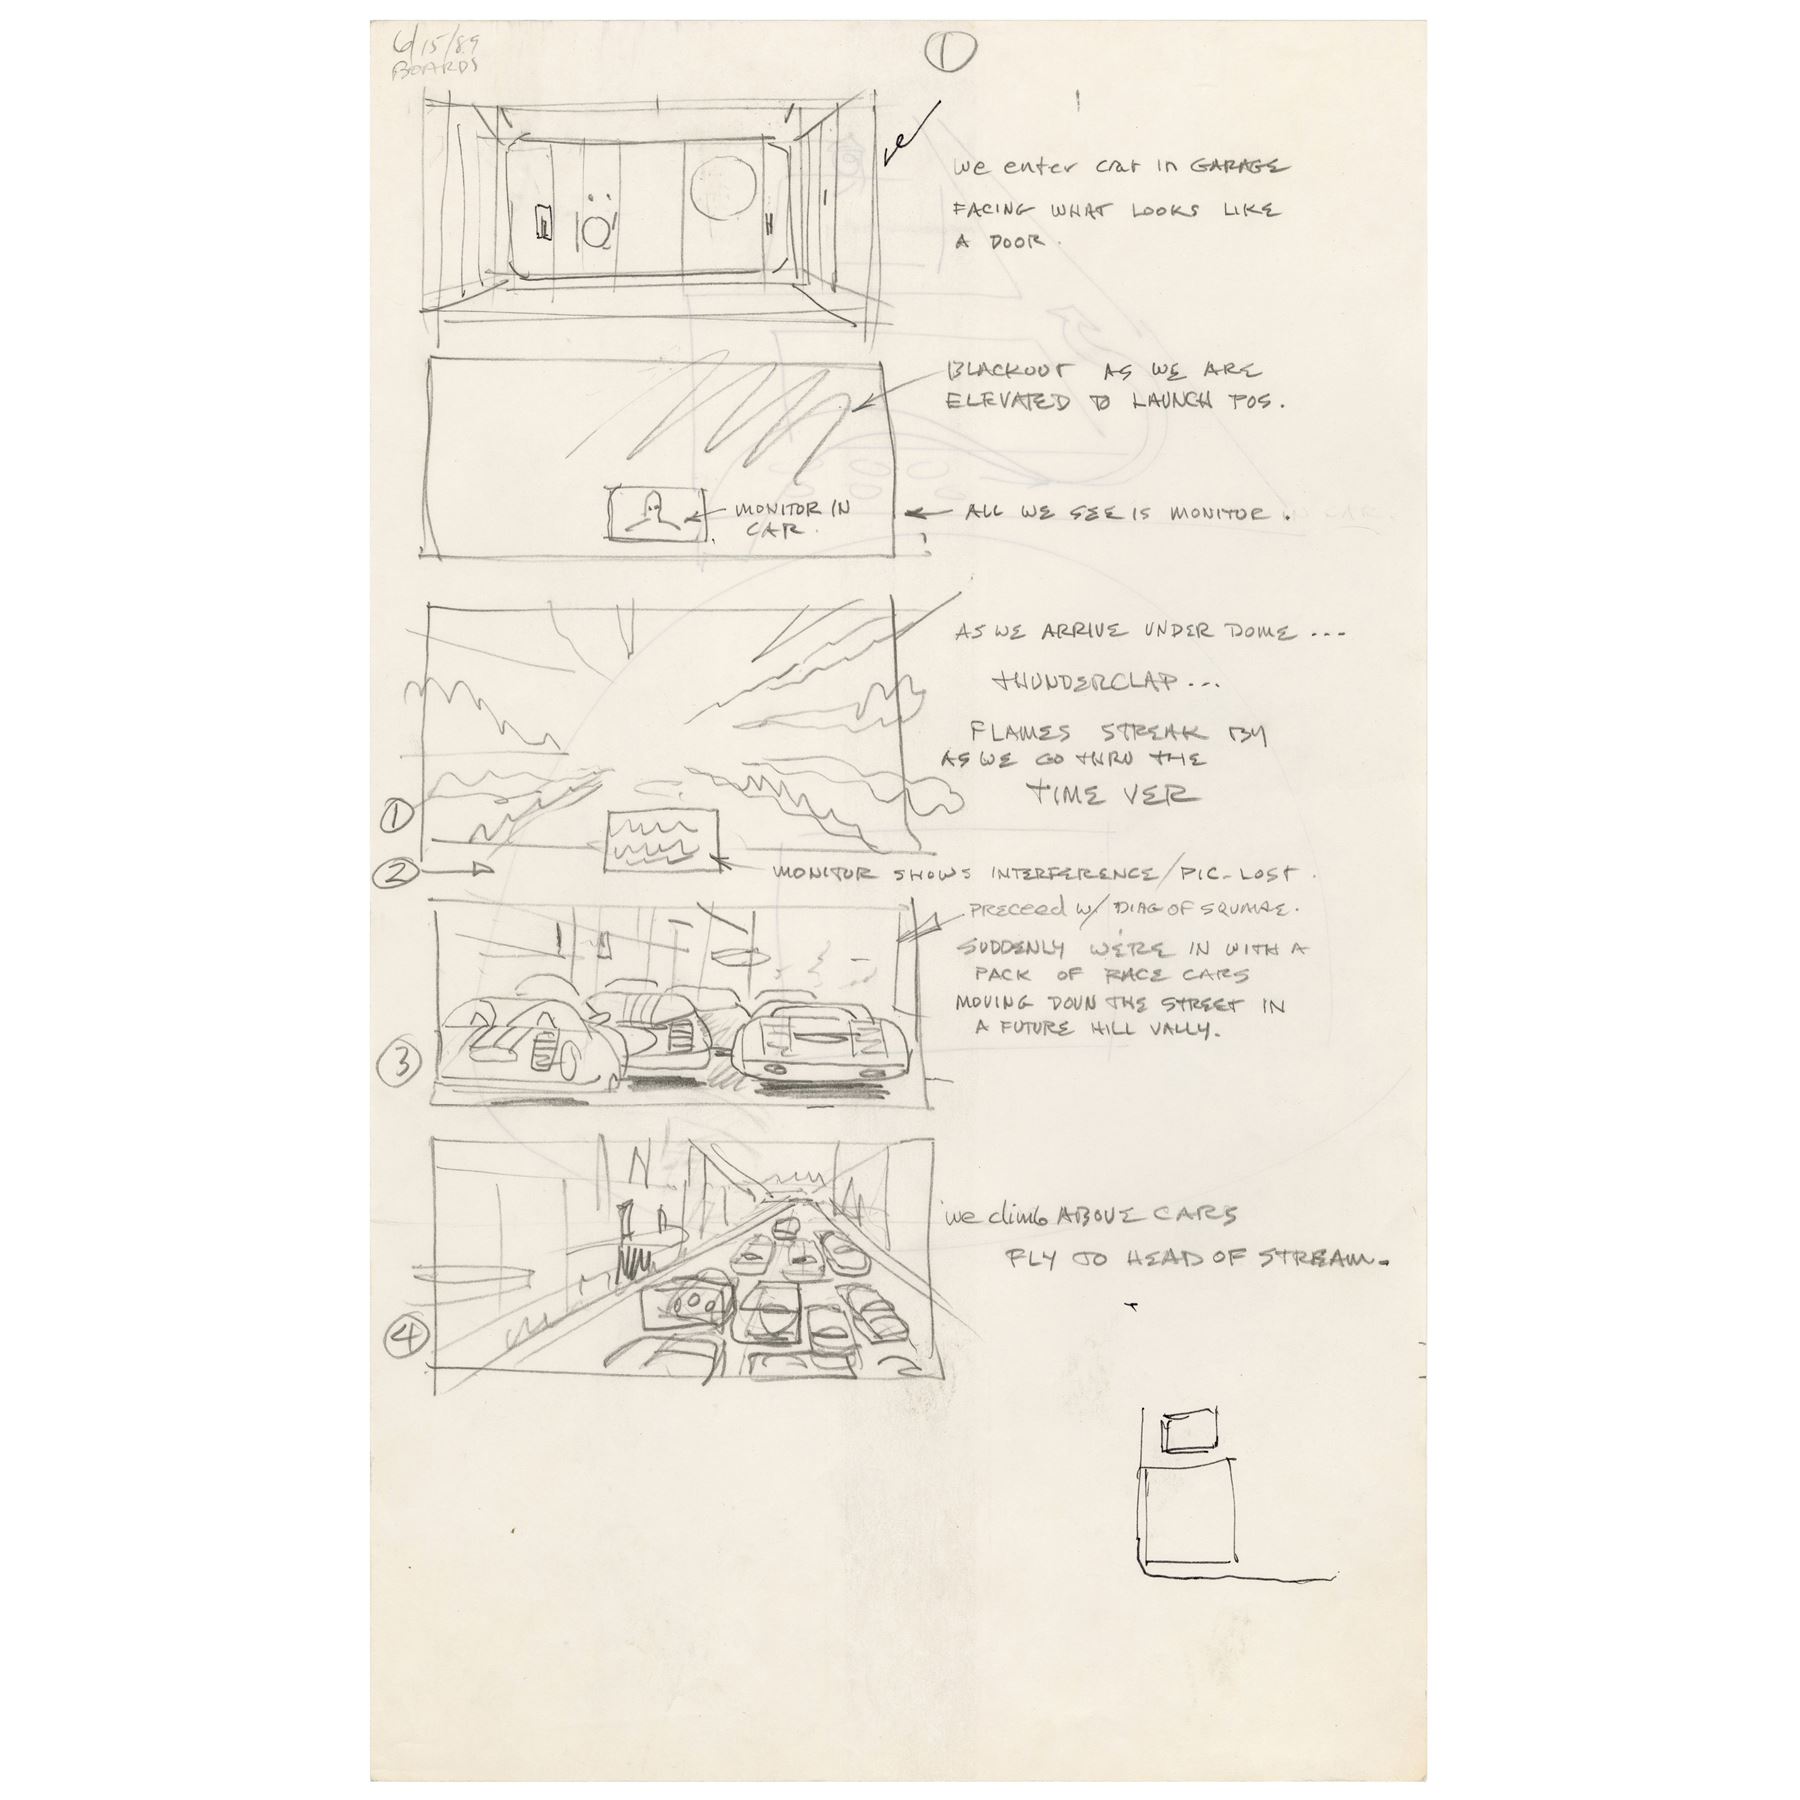 6/15/89
BOARDS
1
we enter car in GARAGE
FACING WHAT LOOKS LIKE
A DOOR.
BLACKOUT AS WE ARE
ELEVATED TO LAUNCH POS.
MONITOR IN
CAR.
ALL WE SEE IS MONITOR.
AS WE ARRIVE UNDER DOME ...
THUNDERCLAP...
FLAMES STREAK BY
AS WE GO THRU THE
TIME VER
1
2
MONITOR SHOWS INTERFERENCE/PIC-LOST.
PRECEED W/ DIAG OF SQUARE.
SUDDENLY WE'RE IN WITH A
PACK OF RACE CARS
MOVING DOWN THE STREET IN
A FUTURE HILL VALLY.
3
we climb ABOVE CARS
FLY TO HEAD OF STREAM.
4